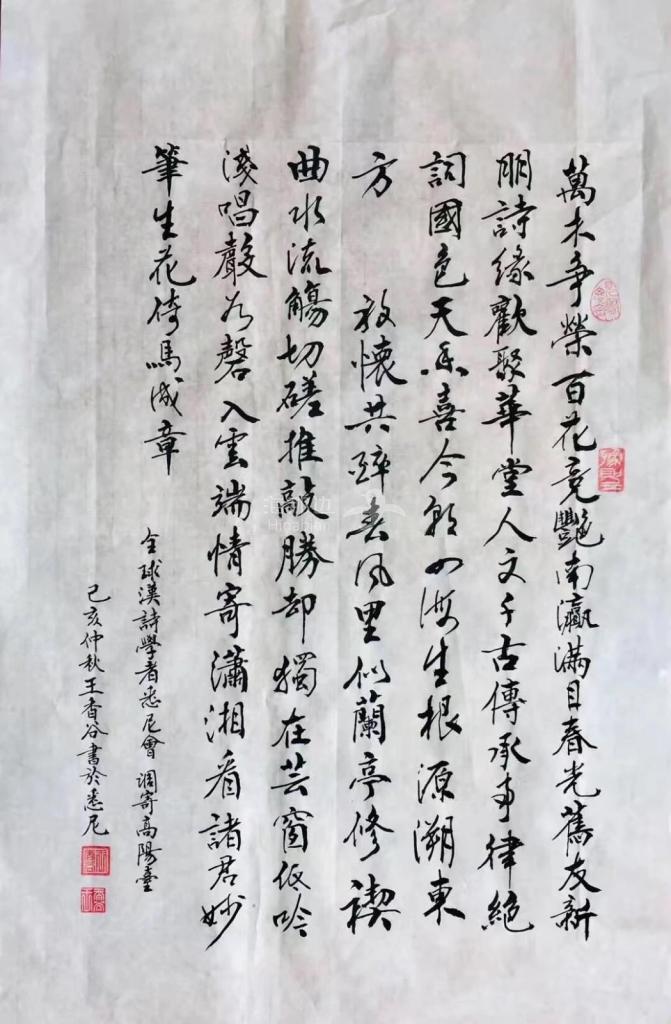 萬木爭榮百花竞豔南瀛滿目春光舊友新
朋詩緣歡聚華堂人文千古傳承事律絕
詞國色天香喜今朝四海生根源溯東
方 放懷共醉春風里似蘭亭修禊
曲水流觴切磋推敲勝却獨在芸窗低吟
淺唱聲如磬入雲端情寄瀟湘看諸君妙
筆生花倚馬成章
全球漢詩學者悉尼會 調寄高陽臺
己亥仲秋王香谷書於悉尼